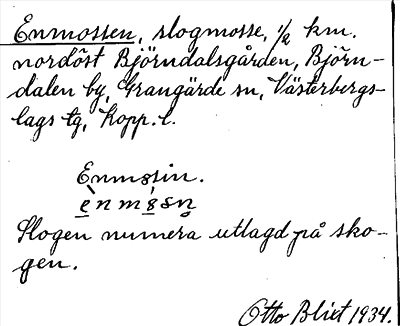 Enmossen, slogmosse, 1/2 km.
nordöst Björndalsgården, Björn-
dalen by, Grangärde sn, Västerbergs-
lags tg, Kopp. l.
Enmosin.
Slogen numera utlagd på sko-
gen.
Otto Blixt 1934.